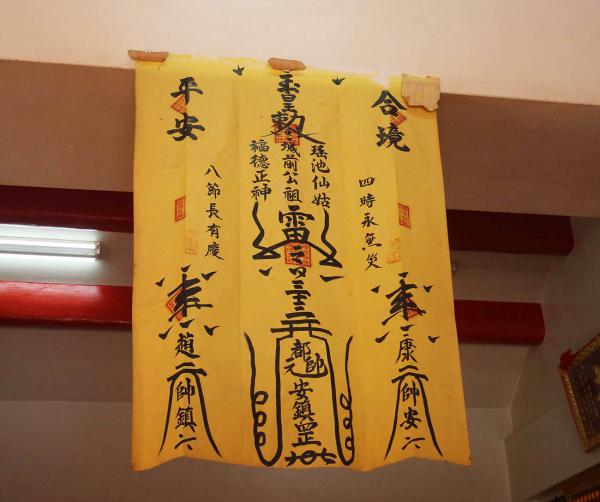 合境
四時永無災
康
帥安
玉皇勅
瑤池仙姑
城前公祖
福德正神
雷
都元帥
安鎮
平安
八節長有慶
趙
帥鎮